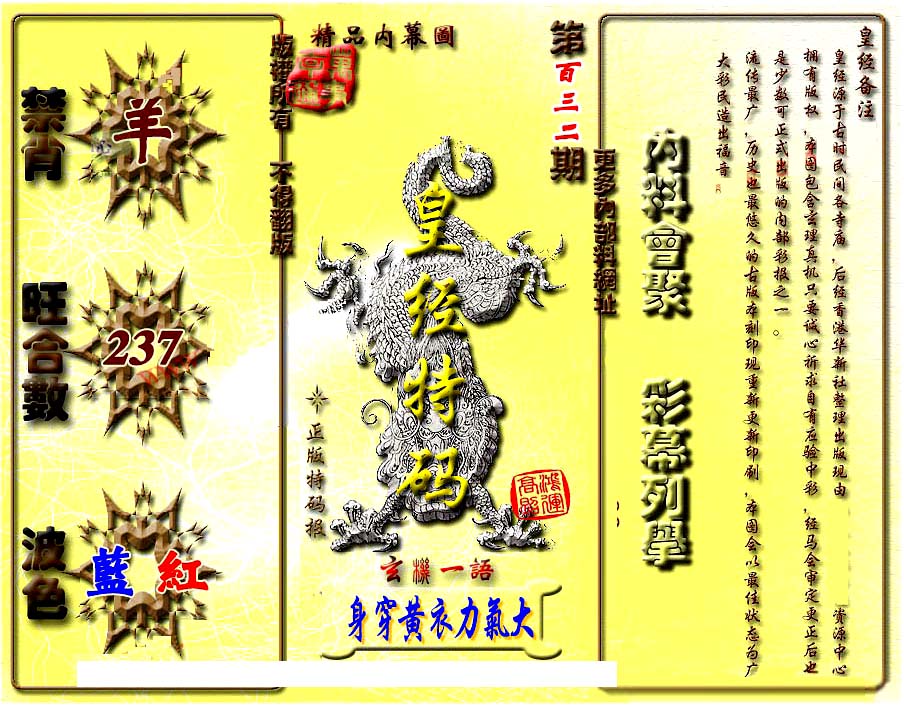 皇经备注
皇经源于古时民间各寺庙,后经香港华新社整理出版现由
资源中心
拥有版权,本图包含玄理真机只要诚心祈求自有应验中彩,经马会审定更正后也
是少数可正式出版的内部彩报之一。
流传最广,历史也最悠久的古版本刻印现重新更新印刷,本图会以最佳状态为广
大彩民造出福音
內料會聚
彩幕列舉
更多內部料網址
第百三二期
精品内幕圖
版權所有
不得翻版
皇经特码
正版特码报
鴻運高照
玄機一語
身穿黄衣力氣大
禁肖
羊
旺合數
237
波色
藍 紅